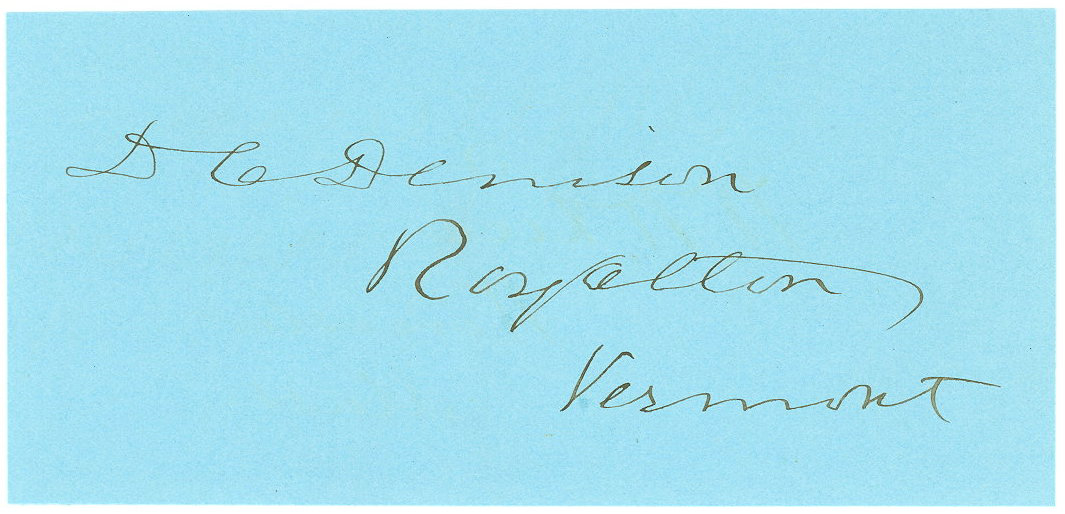 D C Denison
Royalton
Vermont